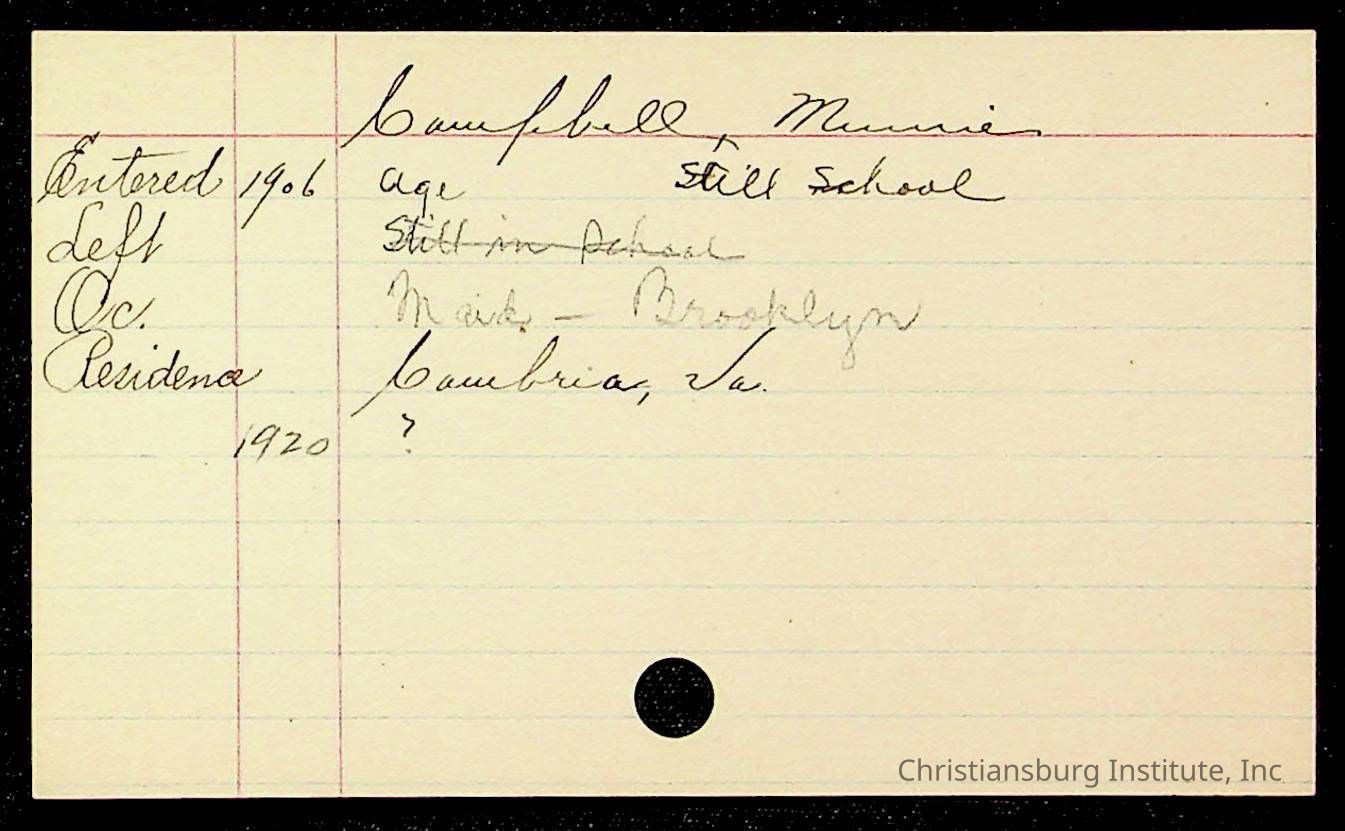 Campbell, Minnie
Entered 1906 age Still School
Left ~~Still in School~~
Oc. Maid - Brooklyn
Residence Cambria, Va.
1920 ?
Christiansburg Institute, Inc